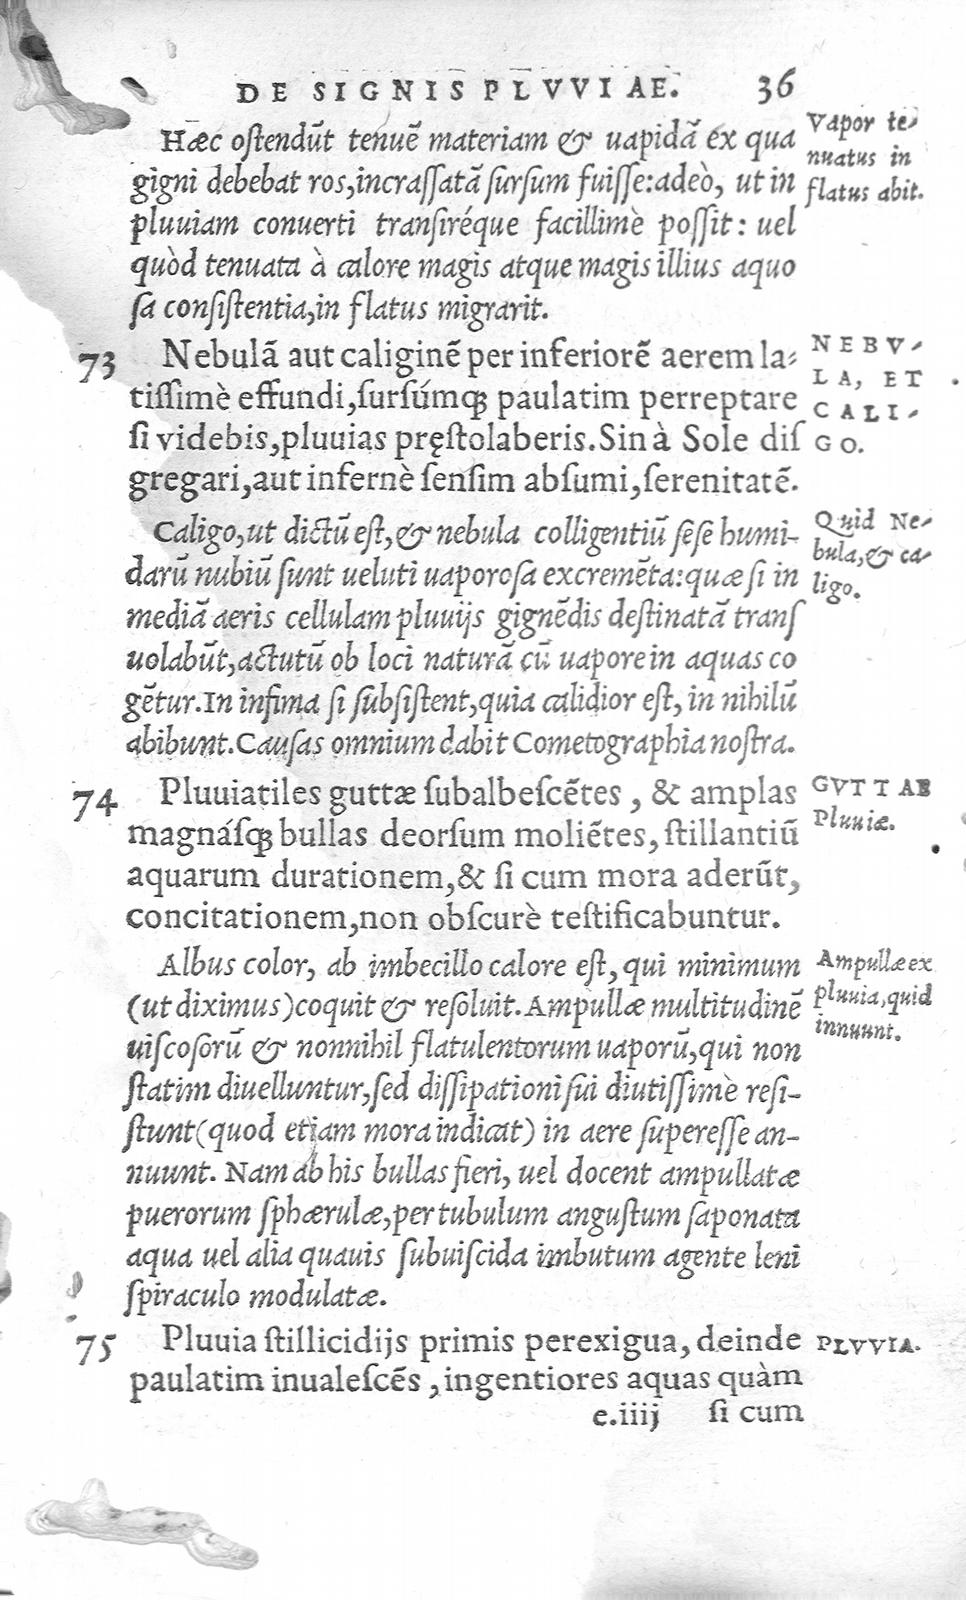 DE SIGNIS PLVVIAE. 36
Hæc ostendūt tenuē materiam & uapidā ex qua
gigni debebat ros,incrassatā sursum fuisse:adeò, ut in
pluuiam conuerti transiréque facillimè possit: uel
quòd tenuata à calore magis atque magis illius aquo
sa consistentia,in flatus migrarit.
Vapor te-
nuatus in
flatus abit.
73 Nebulā aut caliginē per inferiorē aerem la-
tissimè effundi,sursúmqꝫ paulatim perreptare
si videbis,pluuias pręstolaberis.Sin à Sole dis
gregari,aut infernè sensim absumi,serenitatē.
NEBV-
LA, ET
CALI-
GO.
Caligo,ut dictū est,& nebula colligentiū sese humi-
darū nubiū sunt ueluti uaporosa excremēta:quæ si in
mediā aeris cellulam pluuijs gignēdis destinatā trans
uolabūt,actutū ob loci naturā cū uapore in aquas co
gētur.In infima si subsistent,quia calidior est, in nihilū
abibunt.Causas omnium dabit Cometographia nostra.
Quid Ne-
bula,& ca-
ligo.
74 Pluuiatiles guttæ subalbescētes , & amplas
magnásqꝫ bullas deorsum moliētes, stillantiū
aquarum durationem,& si cum mora aderūt,
concitationem,non obscurè testificabuntur.
GVTTAE
Pluuiæ.
Albus color, ab imbecillo calore est, qui minimum
(ut diximus)coquit & resoluit. Ampullæ multitudinē
uiscosorū & nonnihil flatulentorum uaporū,qui non
statim diuelluntur,sed dissipationi sui diutissimè resi-
stunt(quod etiam mora indicat) in aere superesse an-
nuunt. Nam ab his bullas fieri, uel docent ampullatæ
puerorum sphærulæ,per tubulum angustum saponata
aqua uel alia quauis subuiscida imbutum agente leni
spiraculo modulatæ.
Ampullæ ex
pluuia,quid
innuunt.
75 Pluuia stillicidijs primis perexigua, deinde
paulatim inualescēs , ingentiores aquas quàm
PLVVIA.
e.iiij si cum